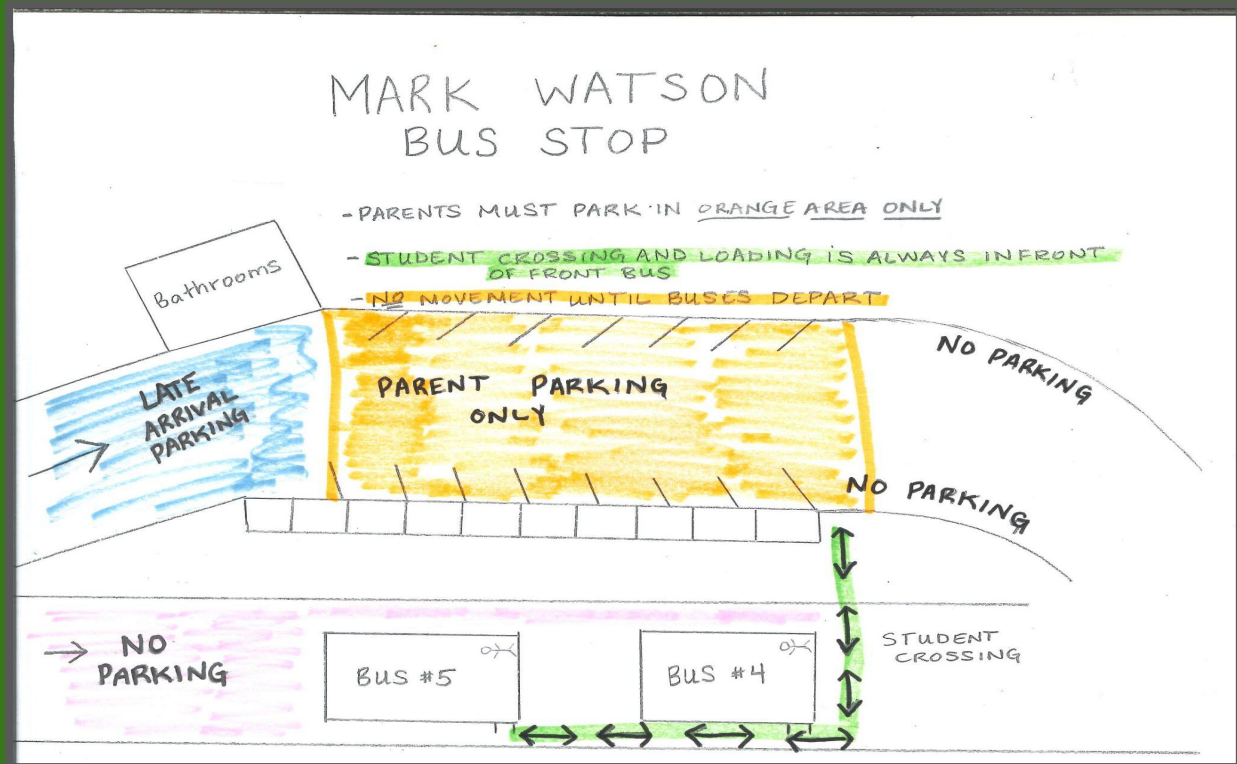 MARK WATSON
BUS STOP
- PARENTS MUST PARK IN ORANGE AREA ONLY
- STUDENT CROSSING AND LOADING IS ALWAYS INFRONT
OF FRONT BUS
- NO MOVEMENT UNTIL BUSES DEPART
Bathrooms
LATE
ARRIVAL
PARKING
PARENT PARKING
ONLY
NO PARKING
NO PARKING
NO
PARKING
BUS #5
BUS #4
STUDENT
CROSSING